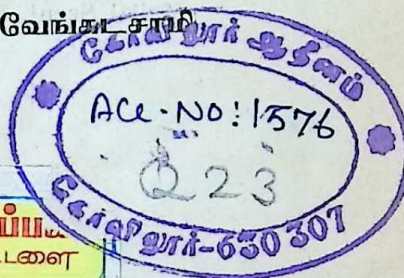 வேங்கடசாமி
கோவிலூர் ஆதீனம்
Acc-NO: 1576
Q 23
கோவிலூர்-630 307
ப்ப
டளை